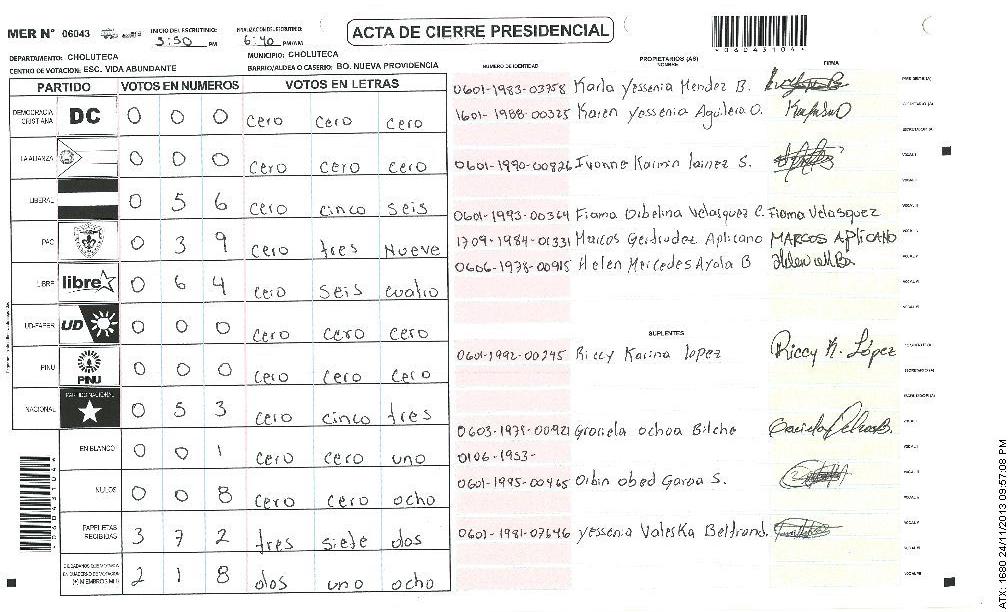 MER N° 06043
INICIO DEL ESCRUTINIO: 3:50 PM
FINALIZACION DE ESCRUTINIO: 6:40 PM/AM
ACTA DE CIERRE PRESIDENCIAL
*06043104*
DEPARTAMENTO: CHOLUTECA
MUNICIPIO: CHOLUTECA
CENTRO DE VOTACION: ESC. VIDA ABUNDANTE
BARRIO/ALDEA O CASERIO: BO. NUEVA PROVIDENCIA
PARTIDO VOTOS EN NUMEROS VOTOS EN LETRAS
DEMOCRACIA CRISTIANA DC 0 0 0 cero cero cero
LA ALIANZA 0 0 0 cero cero cero
LIBERAL 0 5 6 cero cinco seis
PAC 0 3 9 cero tres nueve
LIBRE libre 0 6 4 cero seis cuatro
UD-FAPER UD 0 0 0 cero cero cero
PINU PINU 0 0 0 cero cero cero
NACIONAL PARTIDO NACIONAL 0 5 3 cero cinco tres
EN BLANCO 0 0 1 cero cero uno
NULOS 0 0 8 cero cero ocho
PAPELETAS RECIBIDAS 3 7 2 tres siete dos
(+) MIEMBROS MER 2 1 8 dos uno ocho
NUMERO DE IDENTIDAD PROPIETARIOS (AS) NOMBRE FIRMA
0601-1983-03758 Karla Yessenia Mendez B.
1601-1988-00325 Karen Yessenia Aguilera O.
0601-1990-00826 Ivonne Karmin lainez S.
0601-1993-00364 Fiama Orbelina Velasquez C. Fiama Velasquez
1709-1984-01331 Marcos Gertrudez Aplicano MARCOS APLICANO
0606-1978-00915 Helen Mercedes Ayala B
SUPLENTES
0601-1992-00245 Riccy Karina lopez Riccy K. López
0603-1975-00921 Graciela Ochoa Bilche
0106-1953-
0601-1995-00465 Orbin obed Garcia S.
0601-1981-07646 Yessenia Valeska Beltrand.
ATX: 1680 24/11/2013 09:57:08 PM